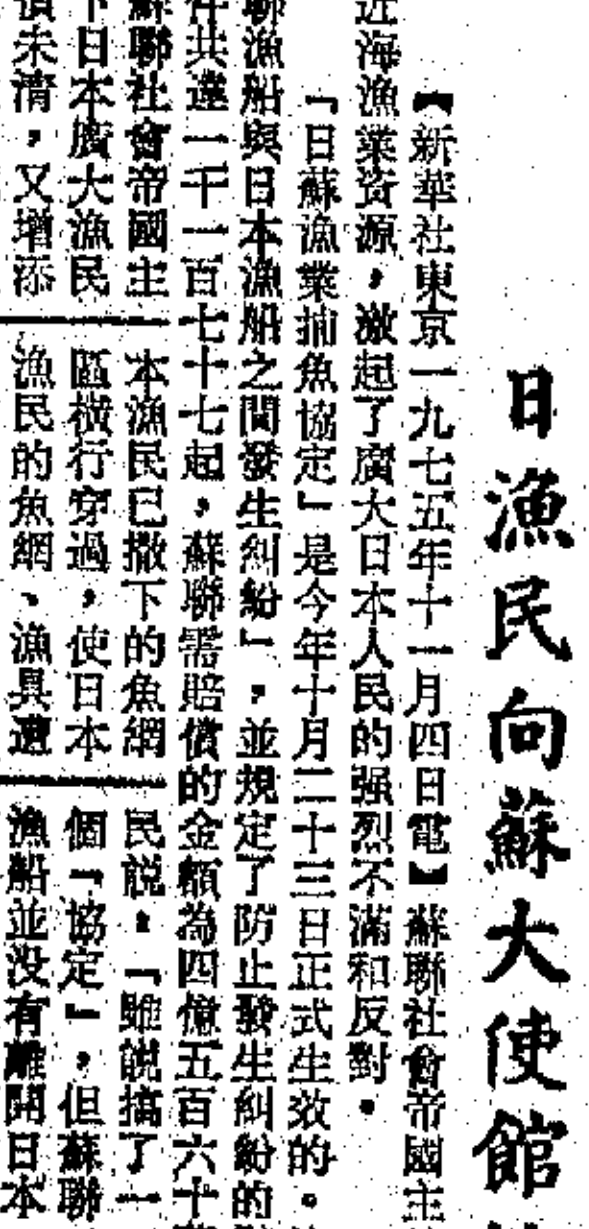 日漁民向蘇大使館
【新華社東京一九七五年十一月四日電】蘇聯社會帝國主
近海漁業資源，激起了廣大日本人民的强烈不滿和反對。
「日蘇漁業捕魚協定」是今年十月二十三日正式生效的。
聯漁船與日本漁船之間發生糾紛」，並規定了防止發生糾紛的
件共達一千一百七十七起，蘇聯需賠償的金額為四億五百六十
蘇聯社會帝國主
下日本廣大漁民
未清，又增添
本漁民已撒下的魚網
區橫行穿過，使日本
漁民的魚網、漁具遭
民說：「雖說搞了一
個「協定」，但蘇聯
漁船並没有離開日本